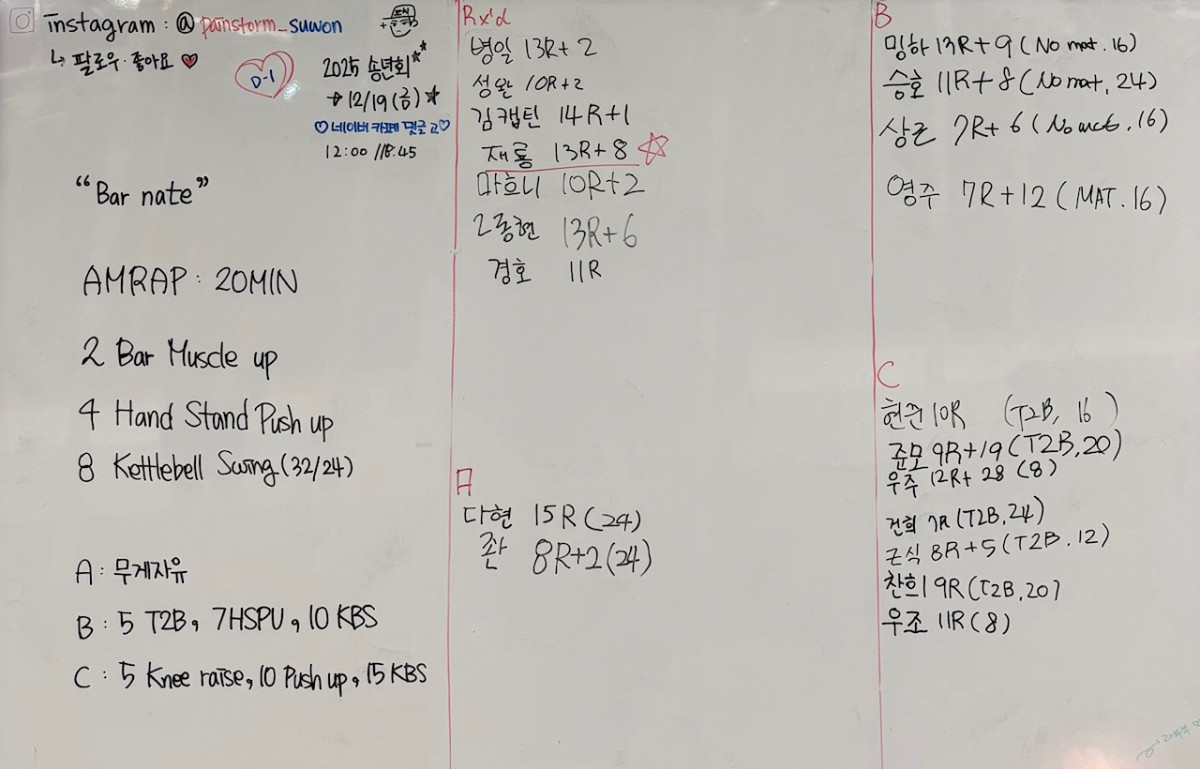 instagram : @ painstorm_suwon
↳ 팔로우·좋아요 ♥
D-1
2025 송년회
→ 12/19 (금)
♡네이버 카페 댓글 고♡
12:00 /18:45
“Bar nate”
AMRAP : 20MIN
2 Bar Muscle up
4 Hand Stand Push up
8 Kettlebell Swing (32/24)
A : 무게자유
B : 5 T2B, 7HSPU, 10 KBS
C : 5 Knee raise, 10 Push up, 15 KBS
Rx'd
병일 13R+2
성완 10R+2
김캡틴 14R+1
재룡 13R+8
마흐니 10R+2
2종현 13R+6
경호 11R
A
다현 15R (24)
좐 8R+2 (24)
B
밍하 13R+9 (No mat. 16)
승호 11R+8 (No mat, 24)
상근 7R+6 (No mat. 16)
영주 7R+12 (MAT. 16)
C
현준 10R (T2B, 16)
준모 9R+19 (T2B, 20)
우주 12R+28 (8)
건희 7R (T2B, 24)
근식 8R+5 (T2B. 12)
찬희 9R (T2B, 20)
우조 11R (8)